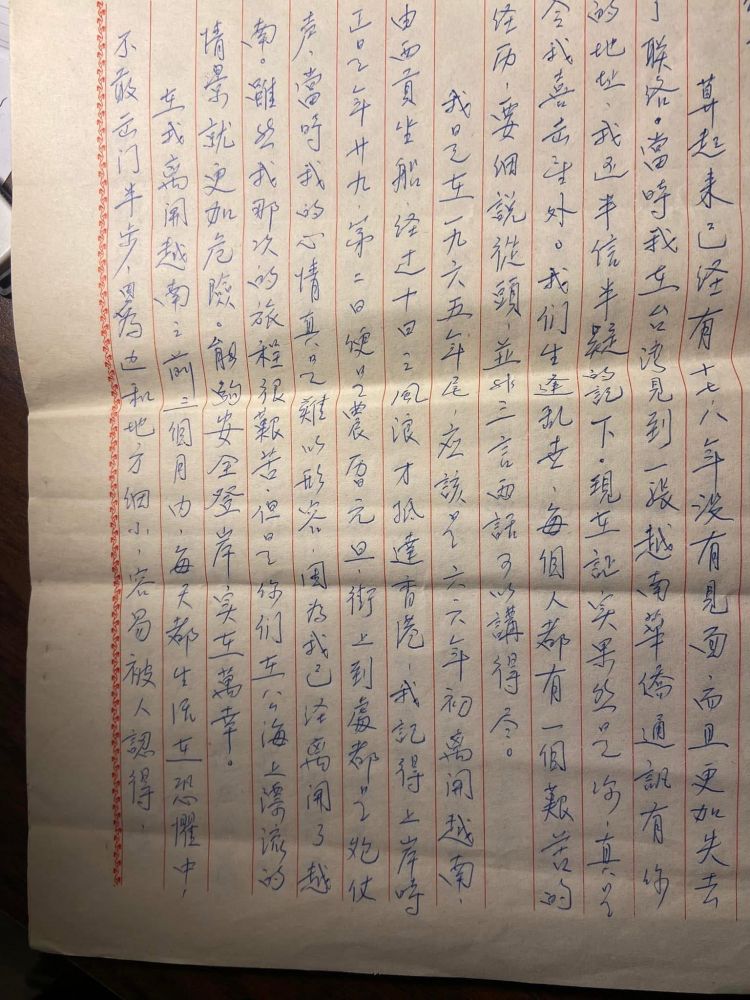 算起来已経有十七、八年没有見面，而且更加失去
了联络。當時我在台湾見到一張越南華僑通訊有你
的地址，我还半信半疑的記下。現在証实果然是你，真是
令我喜出望外。我们生逢乱世，每個人都有一個艱苦的
经历，要细説從頭，並非三言両話可以講得尽。
我是在一九六五年尾，应該是六六年初离開越南，
由西貢坐船，经过十日之風浪才抵達香港，我記得上岸時
正是年廿九，第二日便是農曆元旦，街上到處都是炮仗
声，當時我的心情真是難以形容，因為我已经离開了越
南。雖然我那次的旅程很艱苦，但是你们在公海上漂流的
情景就更加危險。能夠安全登岸实在萬幸。
在我离開越南之前三個月内，每天都生活在恐懼中，
不敢出门半步，因為边和地方细小，容易被人認得，